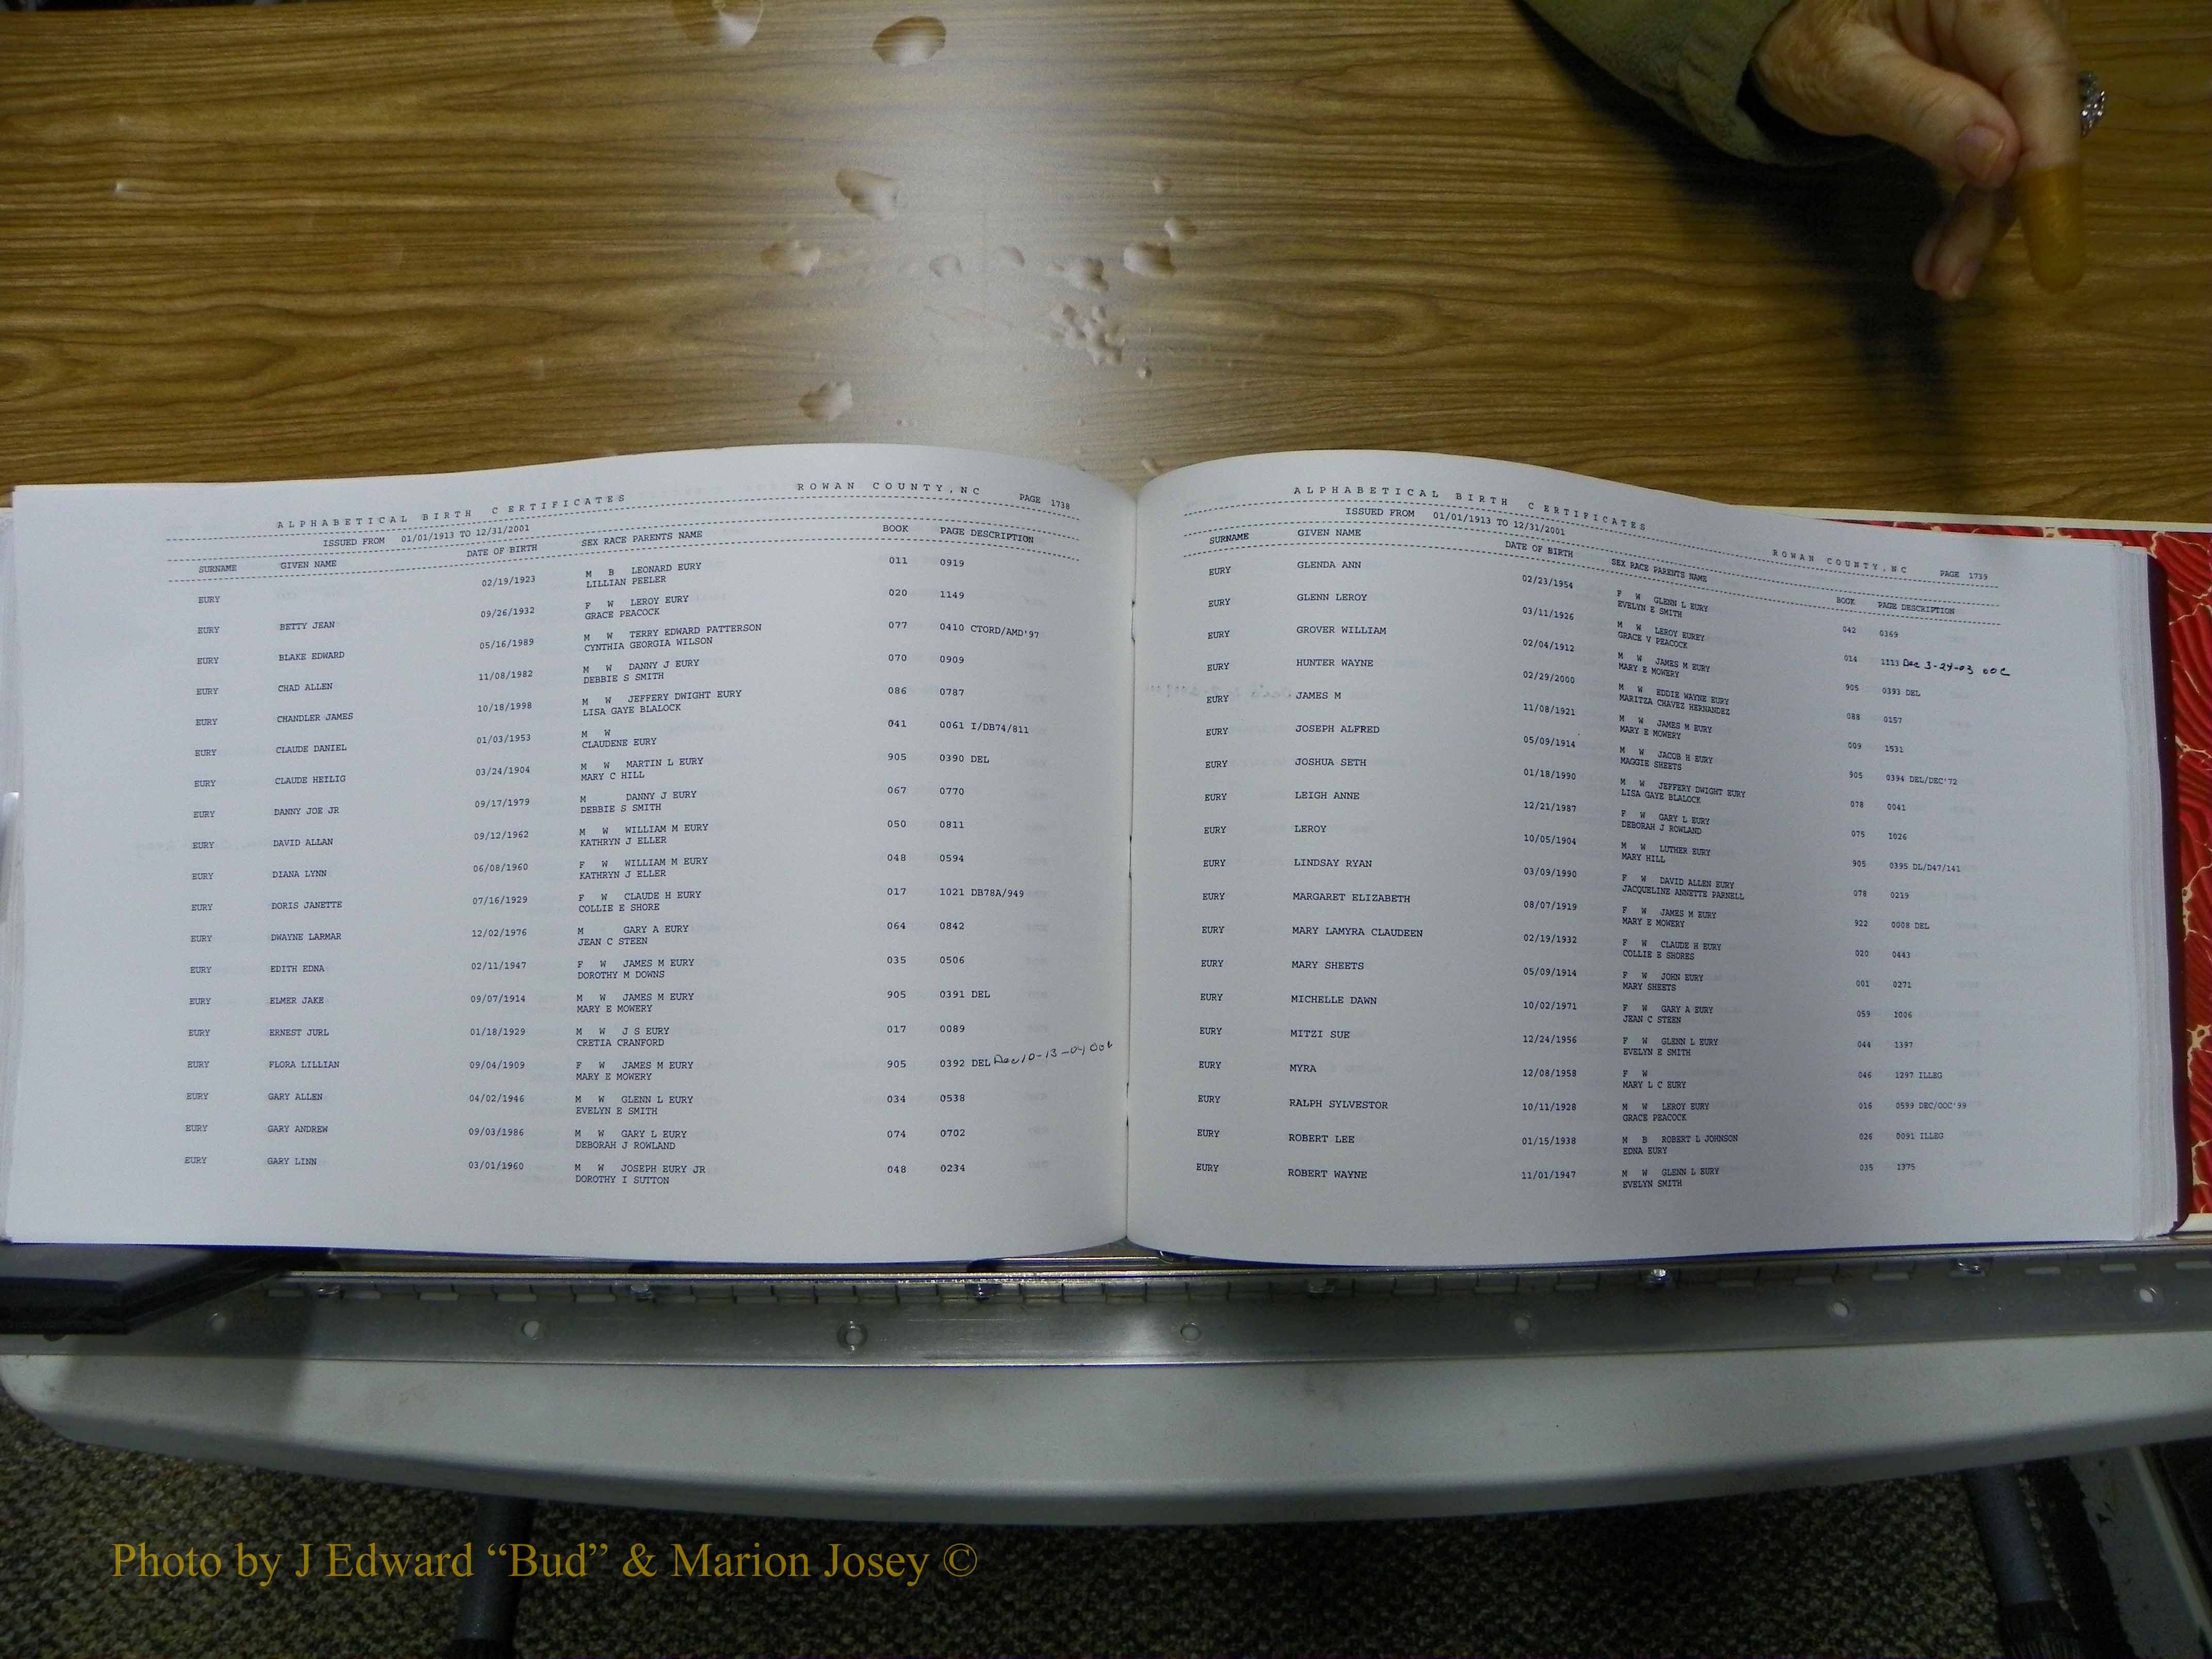 ALPHABETICAL BIRTH CERTIFICATES ROWAN COUNTY, NC PAGE 1738
ISSUED FROM 01/01/1913 TO 12/31/2001
SURNAME GIVEN NAME DATE OF BIRTH SEX RACE PARENTS NAME BOOK PAGE DESCRIPTION
EURY 02/19/1923 M B LEONARD EURY 011 0919
LILLIAN PEELER
EURY BETTY JEAN 09/26/1932 F W LEROY EURY 020 1149
GRACE PEACOCK
EURY BLAKE EDWARD 05/16/1989 M W TERRY EDWARD PATTERSON 077 0410 CTORD/AMD'97
CYNTHIA GEORGIA WILSON
EURY CHAD ALLEN 11/08/1982 M W DANNY J EURY 070 0909
DEBBIE S SMITH
EURY CHANDLER JAMES 10/18/1998 M W JEFFERY DWIGHT EURY 086 0787
LISA GAYE BLALOCK
EURY CLAUDE DANIEL 01/03/1953 M W 041 0061 I/DB74/811
CLAUDENE EURY
EURY CLAUDE HEILIG 03/24/1904 M W MARTIN L EURY 905 0390 DEL
MARY C HILL
EURY DANNY JOE JR 09/17/1979 M DANNY J EURY 067 0770
DEBBIE S SMITH
EURY DAVID ALLAN 09/12/1962 M W WILLIAM M EURY 050 0811
KATHRYN J ELLER
EURY DIANA LYNN 06/08/1960 F W WILLIAM M EURY 048 0594
KATHRYN J ELLER
EURY DORIS JANETTE 07/16/1929 F W CLAUDE H EURY 017 1021 DB78A/949
COLLIE E SHORE
EURY DWAYNE LARMAR 12/02/1976 M GARY A EURY 064 0842
JEAN C STEEN
EURY EDITH EDNA 02/11/1947 F W JAMES M EURY 035 0506
DOROTHY M DOWNS
EURY ELMER JAKE 09/07/1914 M W JAMES M EURY 905 0391 DEL
MARY E MOWERY
EURY ERNEST JURL 01/18/1929 M W J S EURY 017 0089
CRETIA CRANFORD
EURY FLORA LILLIAN 09/04/1909 F W JAMES M EURY 905 0392 DEL Dec 10-13-04 OOC
MARY E MOWERY
EURY GARY ALLEN 04/02/1946 M W GLENN L EURY 034 0538
EVELYN E SMITH
EURY GARY ANDREW 09/03/1986 M W GARY L EURY 074 0702
DEBORAH J ROWLAND
EURY GARY LINN 03/01/1960 M W JOSEPH EURY JR 048 0234
DOROTHY I SUTTON
ALPHABETICAL BIRTH CERTIFICATES ROWAN COUNTY, NC PAGE 1739
ISSUED FROM 01/01/1913 TO 12/31/2001
SURNAME GIVEN NAME DATE OF BIRTH SEX RACE PARENTS NAME BOOK PAGE DESCRIPTION
EURY GLENDA ANN 02/23/1954 F W GLENN L EURY 042 0369
EVELYN E SMITH
EURY GLENN LEROY 03/11/1926 M W LEROY EUREY 014 1113 Dec 3-24-03 OOC
GRACE V PEACOCK
EURY GROVER WILLIAM 02/04/1912 M W JAMES M EURY 905 0393 DEL
MARY E MOWERY
EURY HUNTER WAYNE 02/29/2000 M W EDDIE WAYNE EURY 088 0157
MARITZA CHAVEZ HERNANDEZ
EURY JAMES M 11/08/1921 M W JAMES M EURY 009 1531
MARY E MOWERY
EURY JOSEPH ALFRED 05/09/1914 M W JACOB H EURY 905 0394 DEL/DEC'72
MAGGIE SHEETS
EURY JOSHUA SETH 01/18/1990 M W JEFFERY DWIGHT EURY 078 0041
LISA GAYE BLALOCK
EURY LEIGH ANNE 12/21/1987 F W GARY L EURY 075 1026
DEBORAH J ROWLAND
EURY LEROY 10/05/1904 M W LUTHER EURY 905 0395 DL/D47/141
MARY HILL
EURY LINDSAY RYAN 03/09/1990 F W DAVID ALLEN EURY 078 0219
JACQUELINE ANNETTE PARNELL
EURY MARGARET ELIZABETH 08/07/1919 F W JAMES M EURY 922 0008 DEL
MARY E MOWERY
EURY MARY LAMYRA CLAUDEEN 02/19/1932 F W CLAUDE H EURY 020 0443
COLLIE E SHORES
EURY MARY SHEETS 05/09/1914 F W JOHN EURY 001 0271
MARY SHEETS
EURY MICHELLE DAWN 10/02/1971 F W GARY A EURY 059 1006
JEAN C STEEN
EURY MITZI SUE 12/24/1956 F W GLENN L EURY 044 1397
EVELYN E SMITH
EURY MYRA 12/08/1958 F W 046 1297 ILLEG
MARY L C EURY
EURY RALPH SYLVESTOR 10/11/1928 M W LEROY EURY 016 0599 DEC/OOC'99
GRACE PEACOCK
EURY ROBERT LEE 01/15/1938 M B ROBERT L JOHNSON 026 0091 ILLEG
EDNA EURY
EURY ROBERT WAYNE 11/01/1947 M W GLENN L EURY 035 1375
EVELYN SMITH
Photo by J Edward “Bud” & Marion Josey ©